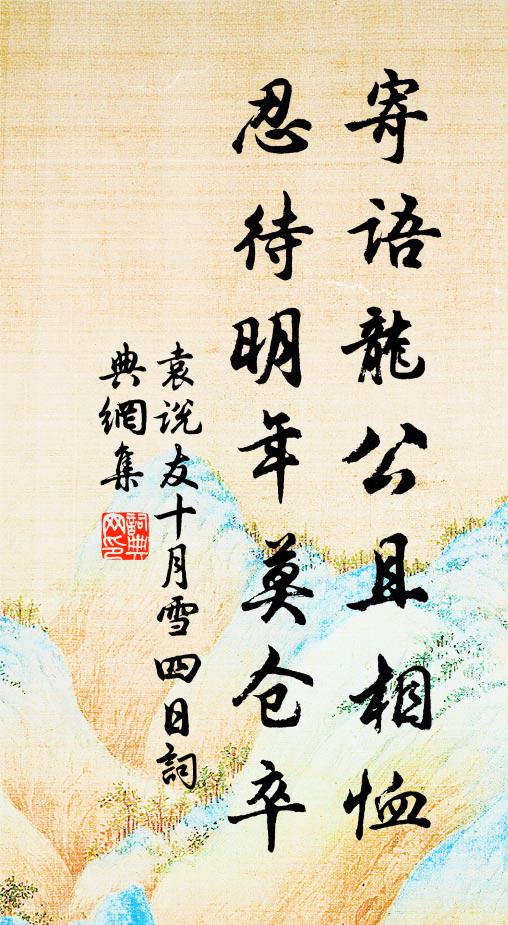 寄語龍公且相恤
忍待明年莫仓卒
袁說友十月雪四日詞
典網集
詞典
网印